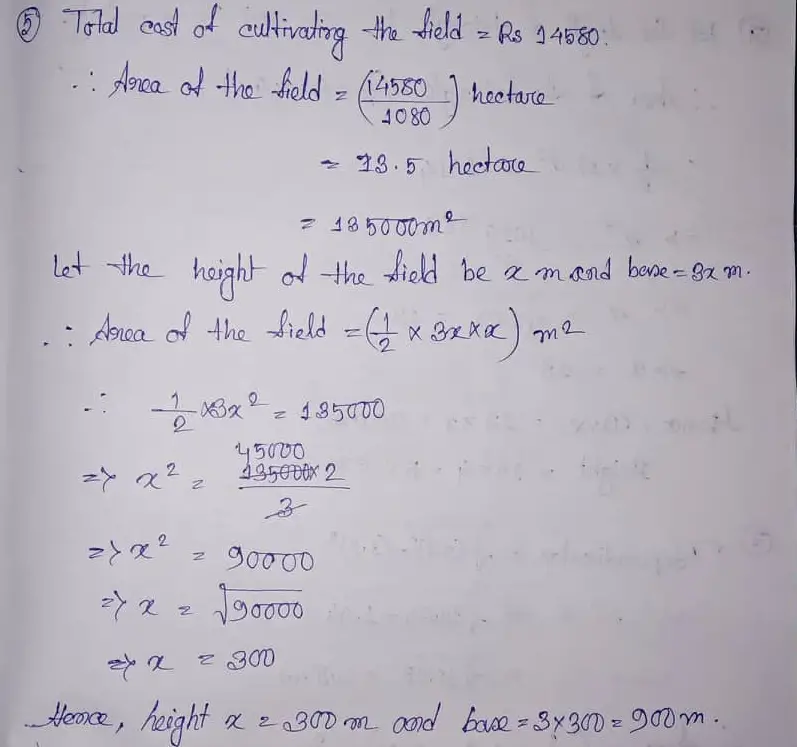 ⑤ Total cost of cultivating the field = Rs 14580.
∴ Area of the field = (14580/1080) hectare
= 13.5 hectare
= 135000m²
Let the height of the field be x m and base = 3x m.
∴ Area of the field = (1/2 × 3x × x) m²
∴ 1/2 × 3x² = 135000
45000
=> x² = 135000 × 2 / 3
=> x² = 90000
=> x = √90000
=> x = 300
Hence, height x = 300 m and base = 3×300 = 900m.